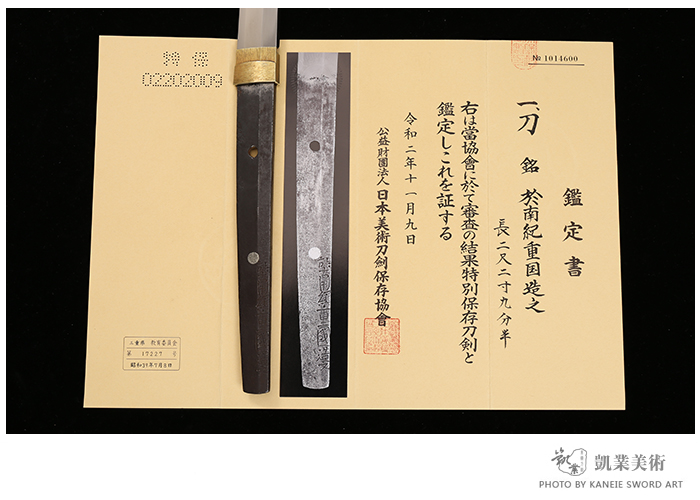 特 保
02202009
№ 1014600
鑑定書
一、刀 銘 於南紀重国造之
長二尺二寸九分半
右は當協會に於て審査の結果特別保存刀剣と
鑑定しこれを証する
令和二年十一月九日
公益財團法人 日本美術刀剣保存協會
三重県 教育委員会
第 17227 号
凱業美術
PHOTO BY KANEIE SWORD ART